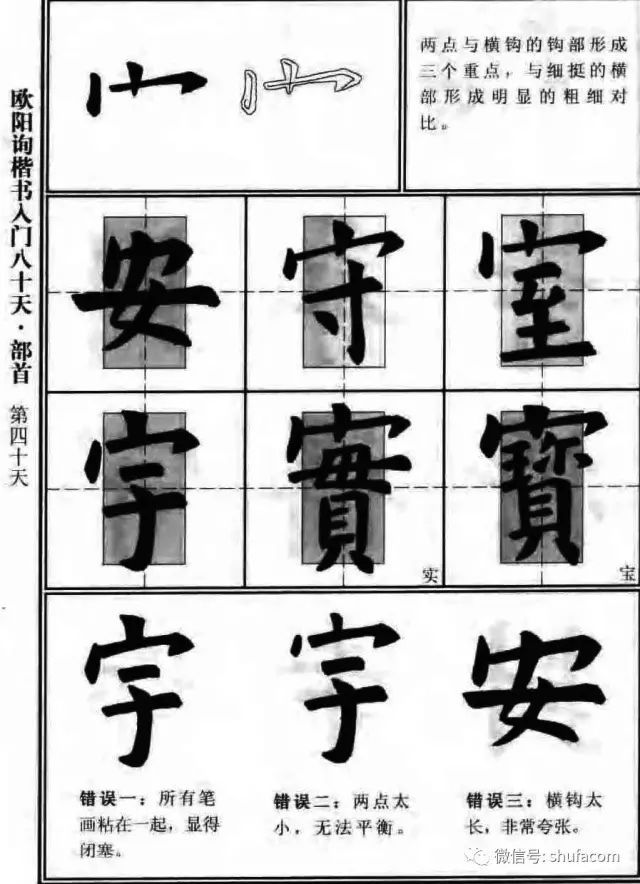 欧阳询楷书入门八十天·部首 第四十天
宀
两点与横钩的钩部形成
三个重点，与细挺的横
部形成明显的粗细对
比。
安 守 室
宇 實 寶
实 宝
宇 宇 安
错误一：所有笔
画粘在一起，显得
闭塞。
错误二：两点太
小，无法平衡。
错误三：横钩太
长，非常夸张。
微信号: shufacom